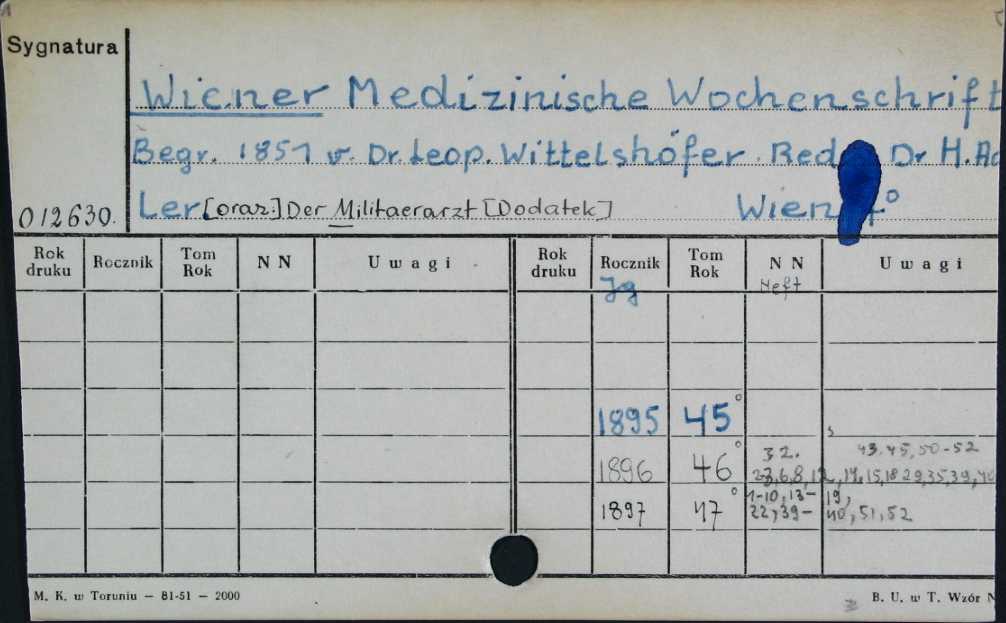 Sygnatura
Wiener Medizinische Wochenschrift
Begr. 1851 v. Dr. Leop. Wittelshöfer. Red Dr H. Ad
012630. Ler [oraz:] Der Militaerarzt [Dodatek] Wien
Rok druku Rocznik Tom Rok N N Uwagi Rok druku Rocznik Tom Rok N N Uwagi
Jg Heft
1895 45°
32. 43.45, 50-52
1896 46° 6,8, 15,18 29,35,39,
1-10, 13- 19,
1897 47° 22, 39- 40, 51, 52
M. K. w Toruniu — 81-51 — 2000 B. U. w T. Wzór N